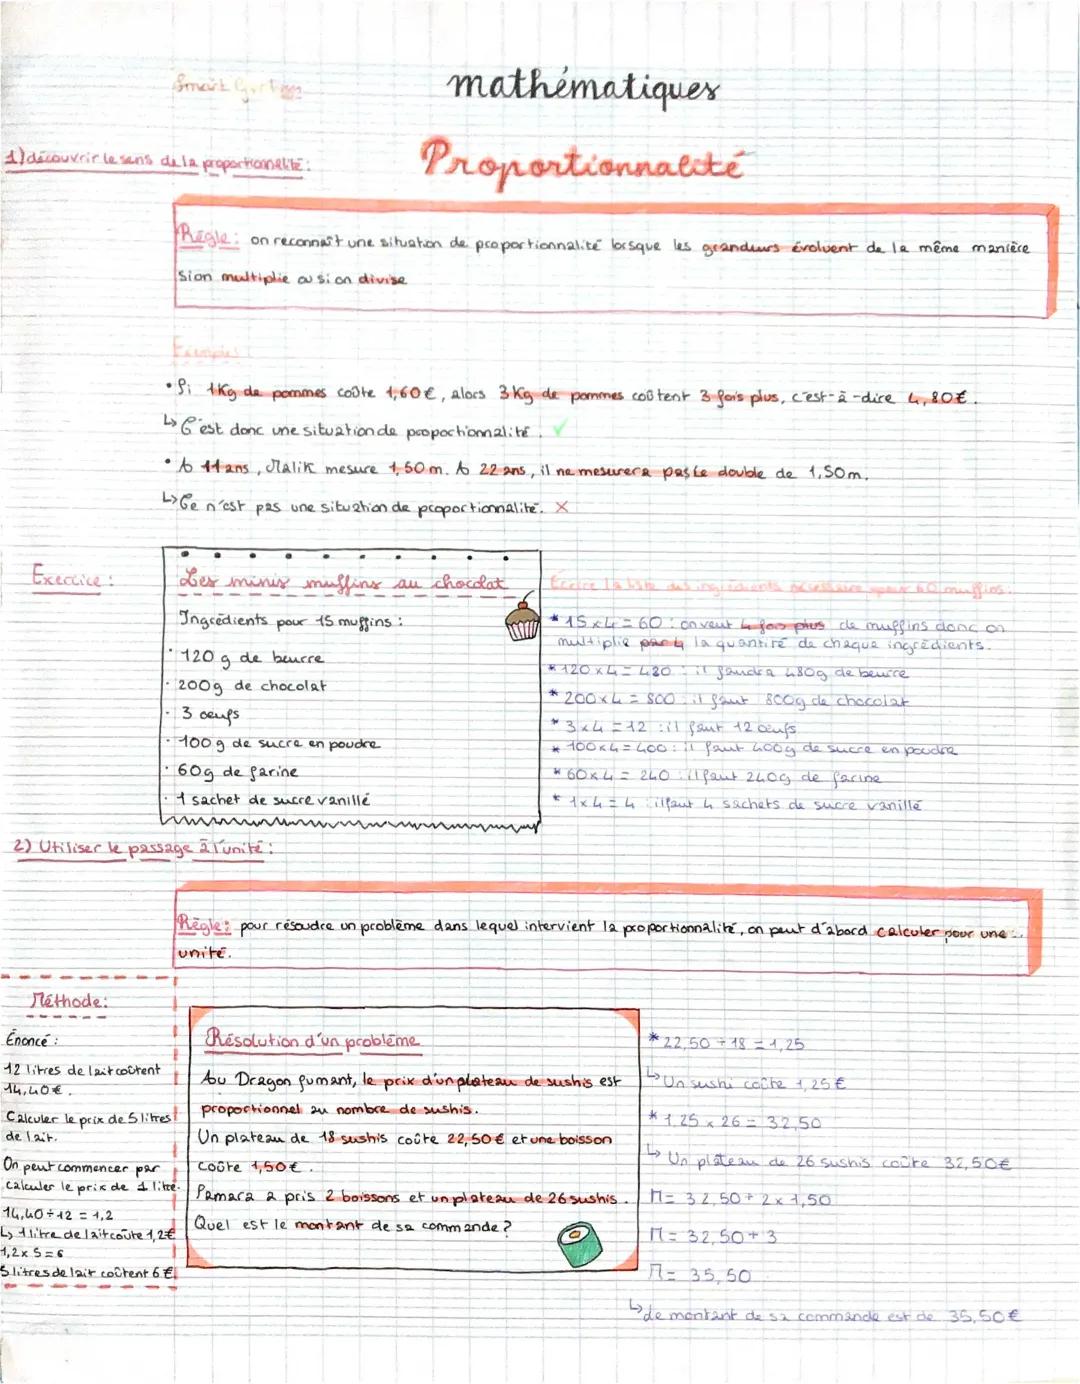 mathématiques
1) découvrir le sens de la proportionnalité :
Proportionnalité
Règle : on reconnaît une situation de proportionnalité lorsque les grandeurs évoluent de la même manière
si on multiplie ou si on divise
Exemples :
• Si 1Kg de pommes coûte 1,60€, alors 3 Kg de pommes coûtent 3 fois plus, c'est-à-dire 4,80€.
↳ C'est donc une situation de proportionnalité. ✓
• A 11 ans, Malik mesure 1,50 m. A 22 ans, il ne mesurera pas le double de 1,50m.
↳ Ce n'est pas une situation de proportionnalité. X
Exercice :
Les minis muffins au chocolat
Ingrédients pour 15 muffins :
· 120 g de beurre
· 200g de chocolat
· 3 oeufs
· 100 g de sucre en poudre
· 60g de farine
· 1 sachet de sucre vanillé
Ecrire la liste des ingrédients nécessaire pour 60 muffins.
* 15 x 4 = 60 : on veut 4 fois plus de muffins donc on
multiplie par 4 la quantité de chaque ingrédients.
* 120 x 4 = 480 : il faudra 480g de beurre
* 200 x 4 = 800 : il faut 800g de chocolat
* 3 x 4 = 12 : il faut 12 oeufs
* 100 x 4 = 400 : il faut 400g de sucre en poudre
* 60 x 4 = 240 : il faut 240g de farine
* 1 x 4 = 4 : il faut 4 sachets de sucre vanillé
2) Utiliser le passage à l'unité :
Règle : pour résoudre un problème dans lequel intervient la proportionnalité, on peut d'abord calculer pour une
unité.
Méthode :
Énoncé :
12 litres de lait coûtent
14,40€.
Calculer le prix de 5 litres
de lait.
On peut commencer par
calculer le prix de 1 litre.
14,40 ÷ 12 = 1,2
↳ 1 litre de lait coûte 1,2€
1,2 x 5 = 6
5 litres de lait coûtent 6€.
Résolution d'un problème
Au Dragon fumant, le prix d'un plateau de sushis est
proportionnel au nombre de sushis.
Un plateau de 18 sushis coûte 22,50€ et une boisson
coûte 1,50€.
Pamara a pris 2 boissons et un plateau de 26 sushis.
Quel est le montant de sa commande ?
* 22,50 ÷ 18 = 1,25
↳ Un sushi coûte 1,25€
* 1,25 x 26 = 32,50
↳ Un plateau de 26 sushis coûte 32,50€
M = 32,50 + 2 x 1,50
M = 32,50 + 3
M = 35,50
↳ le montant de sa commande est de 35,50€